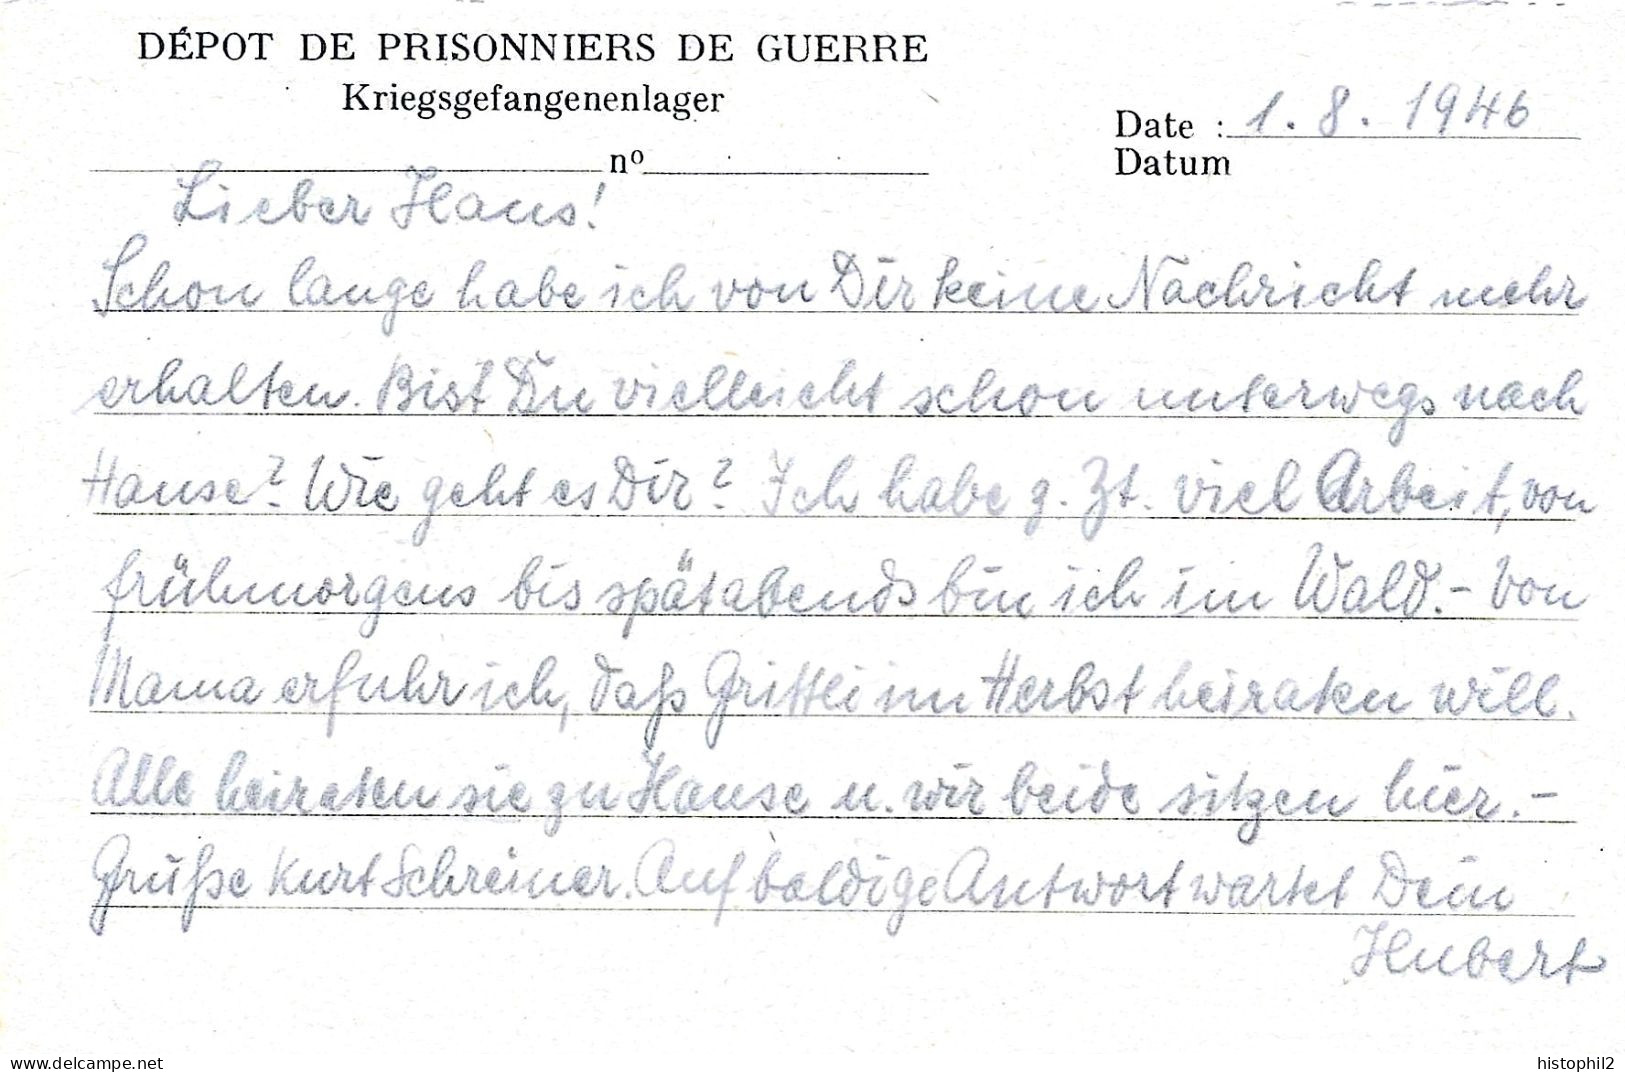 DÉPOT DE PRISONNIERS DE GUERRE
Kriegsgefangenenlager
Date : 1. 8. 1946
nº
Datum
Lieber Hans!
Schon lange habe ich von Dir keine Nachricht mehr
erhalten. Bist Du vielleicht schon unterwegs nach
Hause? Wie geht es Dir? Ich habe z. Zt. viel Arbeit, von
frühmorgens bis spätabends bin ich im Wald.- Von
Mama erfuhr ich, daß Grittli im Herbst heiraten will.
Alle heiraten sie zu Hause u. wir beide sitzen hier.-
Grüße Kurt Schreiner. Auf baldige Antwort wartet Dein
Hubert
www.delcampe.net
histophil2